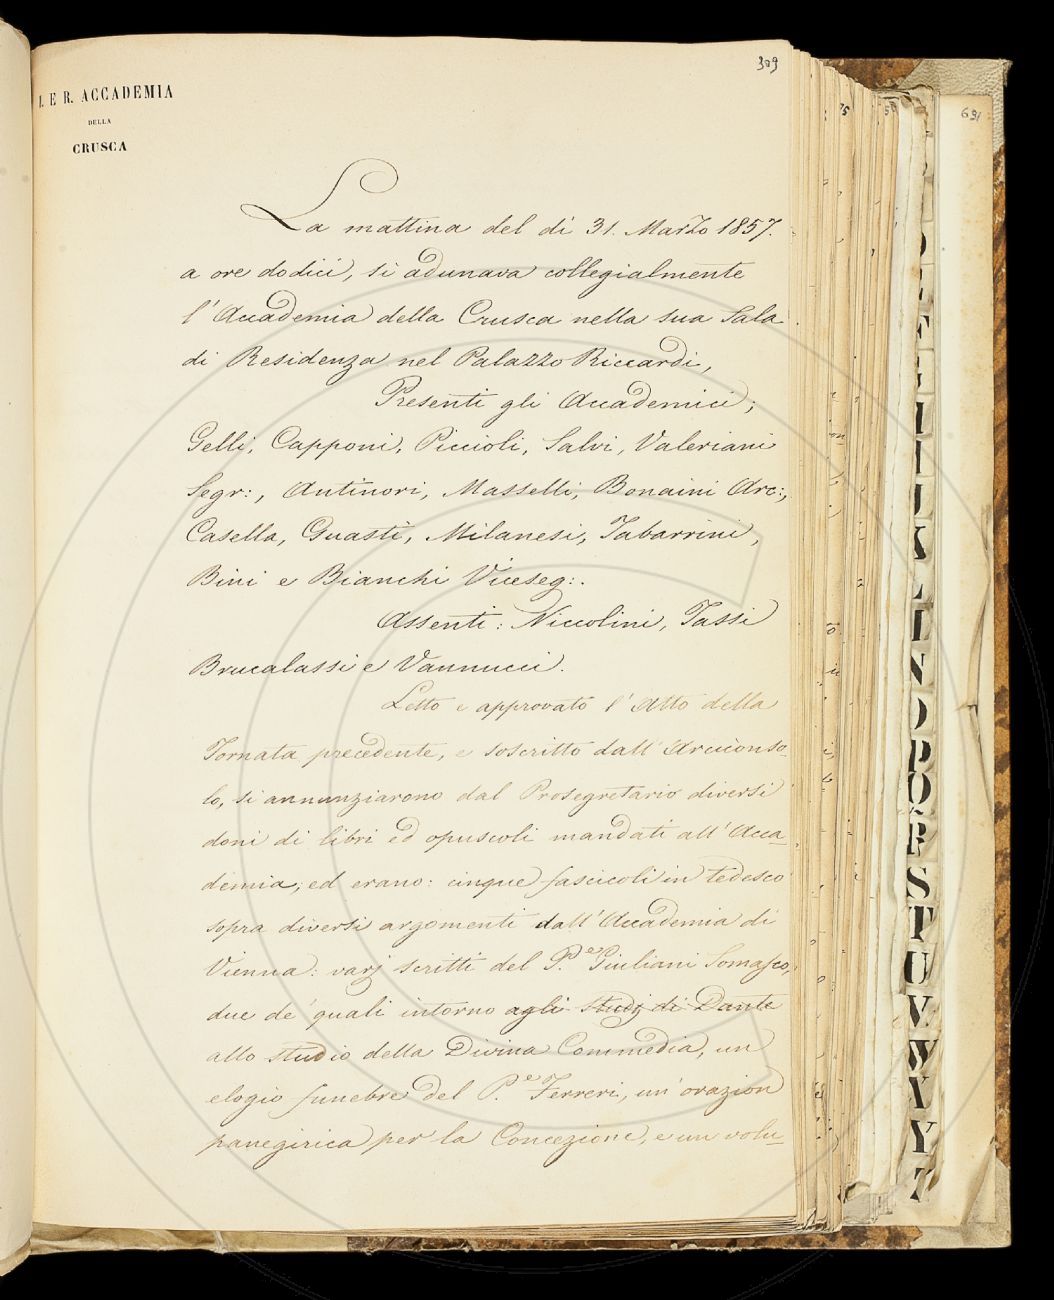 309
I. E R. ACCADEMIA
DELLA
CRUSCA
La mattina del dì 31. Marzo 1857.
a ore dodici, si adunava collegialmente
l'Accademia della Crusca nella sua Sala
di Residenza nel Palazzo Riccardi,
Presenti gli Accademici;
Gelli, Capponi, Piccioli, Salvi, Valeriani
Segr:, Antinori, Masselli, Bonaini Arc:,
Casella, Guasti, Milanesi, Tabarrini,
Bini e Bianchi Viceseg:.
Assenti: Niccolini, Tassi
Brucalassi e Vannucci.
Letto e approvato l'Atto della
Tornata precedente, e soscritto dall'Arciconso-
lo, si annunziarono dal Prosegretario diversi
doni di libri ed opuscoli mandati all'Acca-
demia; ed erano: cinque fascicoli in tedesco
sopra diversi argomenti dall'Accademia di
Vienna: varj scritti del P.e Giuliani Somasco,
due de' quali intorno agli studj di Dante
allo studio della Divina Commedia, un
elogio funebre del P.e Ferreri, un'orazion
panegirica per la Concezione, e un volu-
691
D E F G H I J K L M N O P Q R S T U V W X Y Z